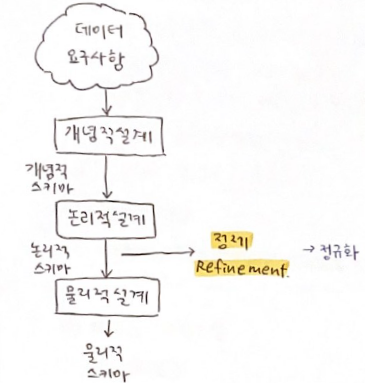 데이터
요구사항
개념적설계
개념적
스키마
논리적설계
논리적
스키마
정제
Refinement.
→ 정규화
물리적설계
물리적
스키마